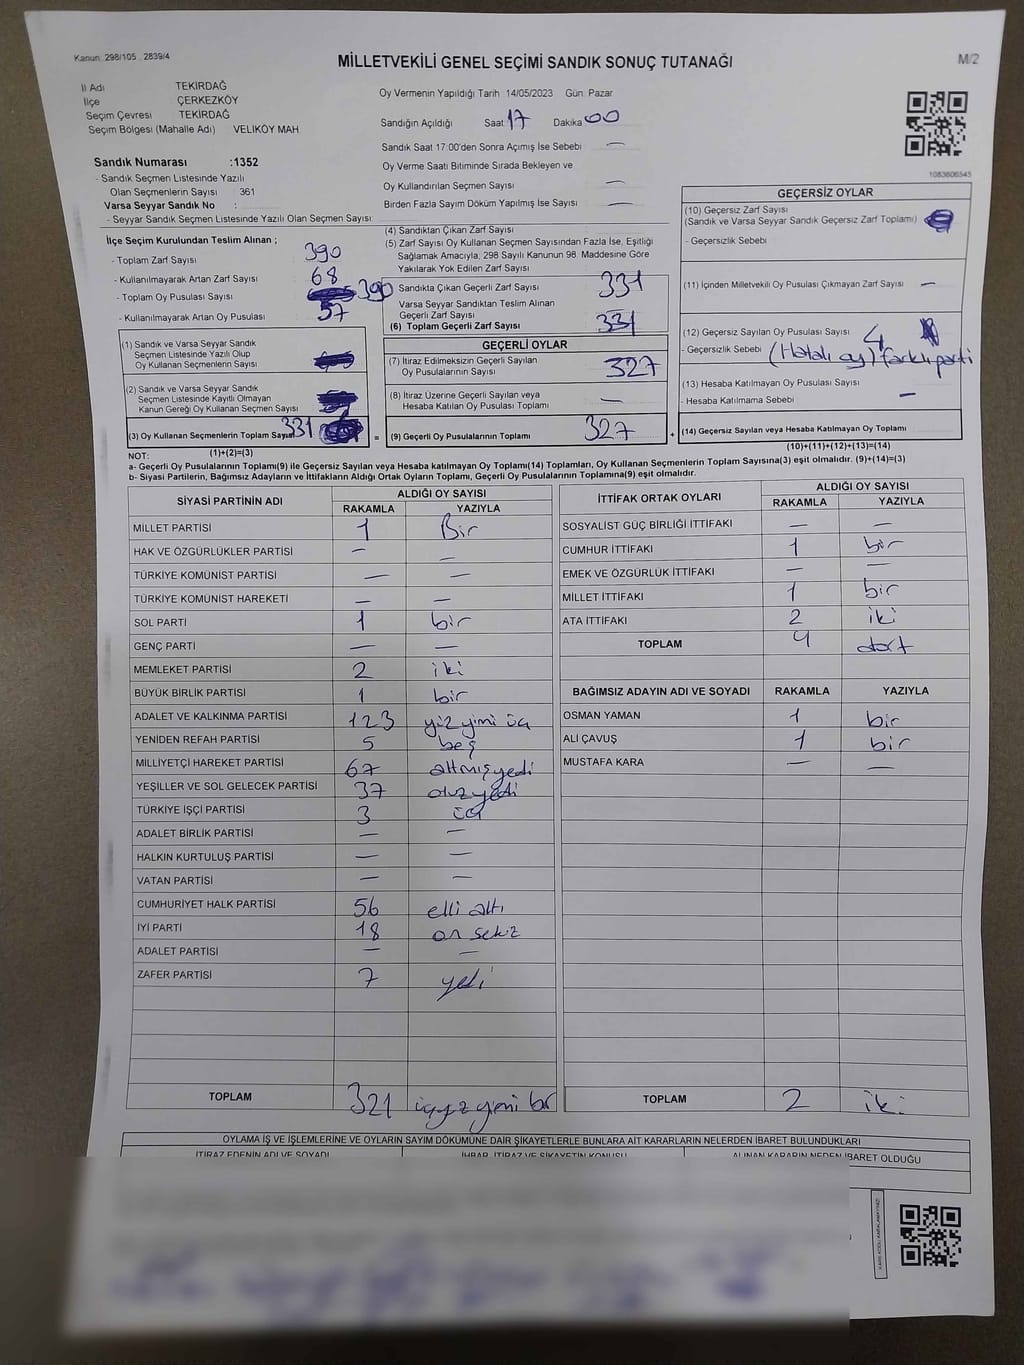 Kanun, 298/105 , 2839/4
MİLLETVEKİLİ GENEL SEÇİMİ SANDIK SONUÇ TUTANAĞI
M/2
İl Adı TEKİRDAĞ
İlçe ÇERKEZKÖY
Seçim Çevresi TEKİRDAĞ
Seçim Bölgesi (Mahalle Adı) VELİKÖY MAH
Sandık Numarası :1352
- Sandık Seçmen Listesinde Yazılı
Olan Seçmenlerin Sayısı : 361
Varsa Seyyar Sandık No :
- Seyyar Sandık Seçmen Listesinde Yazılı Olan Seçmen Sayısı:
Oy Vermenin Yapıldığı Tarih 14/05/2023 Gün: Pazar
Sandığın Açıldığı Saat 17 Dakika 00
Sandık Saat 17:00'den Sonra Açımış İse Sebebi —
Oy Verme Saati Bitiminde Sırada Bekleyen ve
Oy Kullandırılan Seçmen Sayısı —
Birden Fazla Sayım Döküm Yapılmış İse Sayısı —
1083606545
İlçe Seçim Kurulundan Teslim Alınan ;
- Toplam Zarf Sayısı 390
- Kullanılmayarak Artan Zarf Sayısı 68
- Toplam Oy Pusulası Sayısı 390
- Kullanılmayarak Artan Oy Pusulası 57
(1) Sandık ve Varsa Seyyar Sandık
Seçmen Listesinde Yazılı Olup
Oy Kullanan Seçmenlerin Sayısı
(2) Sandık ve Varsa Seyyar Sandık
Seçmen Listesinde Kayıtlı Olmayan
Kanun Gereği Oy Kullanan Seçmen Sayısı
(3) Oy Kullanan Seçmenlerin Toplam Sayısı 331
(1)+(2)=(3)
(4) Sandıktan Çıkan Zarf Sayısı
(5) Zarf Sayısı Oy Kullanan Seçmen Sayısından Fazla İse, Eşitliği
Sağlamak Amacıyla; 298 Sayılı Kanunun 98. Maddesine Göre
Yakılarak Yok Edilen Zarf Sayısı
Sandıkta Çıkan Geçerli Zarf Sayısı 331
Varsa Seyyar Sandıktan Teslim Alınan
Geçerli Zarf Sayısı
(6) Toplam Geçerli Zarf Sayısı 331
GEÇERLİ OYLAR
(7) İtiraz Edilmeksizin Geçerli Sayılan
Oy Pusulalarının Sayısı 327
(8) İtiraz Üzerine Geçerli Sayılan veya
Hesaba Katılan Oy Pusulası Toplamı —
= (9) Geçerli Oy Pusulalarının Toplamı 327 +
GEÇERSİZ OYLAR
(10) Geçersiz Zarf Sayısı
(Sandık ve Varsa Seyyar Sandık Geçersiz Zarf Toplamı)
- Geçersizlik Sebebi
(11) İçinden Milletvekili Oy Pusulası Çıkmayan Zarf Sayısı —
(12) Geçersiz Sayılan Oy Pusulası Sayısı 4
- Geçersizlik Sebebi (Hatalı oy) farklı parti
(13) Hesaba Katılmayan Oy Pusulası Sayısı
- Hesaba Katılmama Sebebi —
(14) Geçersiz Sayılan veya Hesaba Katılmayan Oy Toplamı
(10)+(11)+(12)+(13)=(14)
NOT:
a- Geçerli Oy Pusulalarının Toplamı(9) ile Geçersiz Sayılan veya Hesaba katılmayan Oy Toplamı(14) Toplamları, Oy Kullanan Seçmenlerin Toplam Sayısına(3) eşit olmalıdır. (9)+(14)=(3)
b- Siyasi Partilerin, Bağımsız Adayların ve İttifakların Aldığı Oyların Toplamı, Geçerli Oy Pusulalarının Toplamına(9) eşit olmalıdır.
SİYASİ PARTİNİN ADI
ALDIĞI OY SAYISI
RAKAMLA YAZIYLA
MİLLET PARTİSİ 1 Bir
HAK VE ÖZGÜRLÜKLER PARTİSİ — —
TÜRKİYE KOMÜNİST PARTİSİ — —
TÜRKİYE KOMÜNİST HAREKETİ — —
SOL PARTİ 1 bir
GENÇ PARTİ — —
MEMLEKET PARTİSİ 2 iki
BÜYÜK BİRLİK PARTİSİ 1 bir
ADALET VE KALKINMA PARTİSİ 123 yüz yimi üç
YENİDEN REFAH PARTİSİ 5 beş
MİLLİYETÇİ HAREKET PARTİSİ 67 altmışyedi
YEŞİLLER VE SOL GELECEK PARTİSİ 37 otuzyedi
TÜRKİYE İŞÇİ PARTİSİ 3 üç
ADALET BİRLİK PARTİSİ — —
HALKIN KURTULUŞ PARTİSİ — —
VATAN PARTİSİ — —
CUMHURİYET HALK PARTİSİ 56 elli altı
İYİ PARTİ 18 on sekiz
ADALET PARTİSİ — —
ZAFER PARTİSİ 7 yedi
TOPLAM 321 üçyüz yimi bir
İTTİFAK ORTAK OYLARI
ALDIĞI OY SAYISI
RAKAMLA YAZIYLA
SOSYALİST GÜÇ BİRLİĞİ İTTİFAKI — —
CUMHUR İTTİFAKI 1 bir
EMEK VE ÖZGÜRLÜK İTTİFAKI — —
MİLLET İTTİFAKI 1 bir
ATA İTTİFAKI 2 iki
TOPLAM 4 dört
BAĞIMSIZ ADAYIN ADI VE SOYADI RAKAMLA YAZIYLA
OSMAN YAMAN 1 bir
ALİ ÇAVUŞ 1 bir
MUSTAFA KARA — —
TOPLAM 2 iki
OYLAMA İŞ VE İŞLEMLERİNE VE OYLARIN SAYIM DÖKÜMÜNE DAİR ŞİKAYETLERLE BUNLARA AİT KARARLARIN NELERDEN İBARET BULUNDUKLARI
İTİRAZ EDENİN ADI VE SOYADI İHBAR, İTİRAZ VE ŞİKAYETİN KONUSU ALINAN KARARIN NEDEN İBARET OLDUĞU